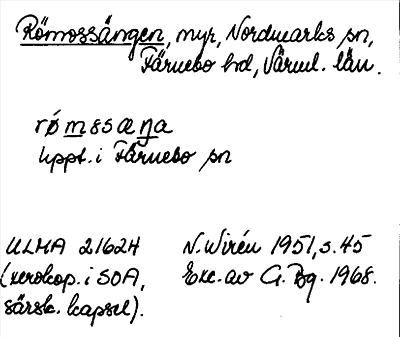 Römossängen, myr, Nordmarks sn,
Färnebo hd, Värml. län.
rǿmssæŋa
Uppt. i Färnebo sn
ULMA 21624
(xerokop. i SOA,
särsk. kapsel).
N. Wirén 1951, s. 45
Exc. av G. Bg. 1968.